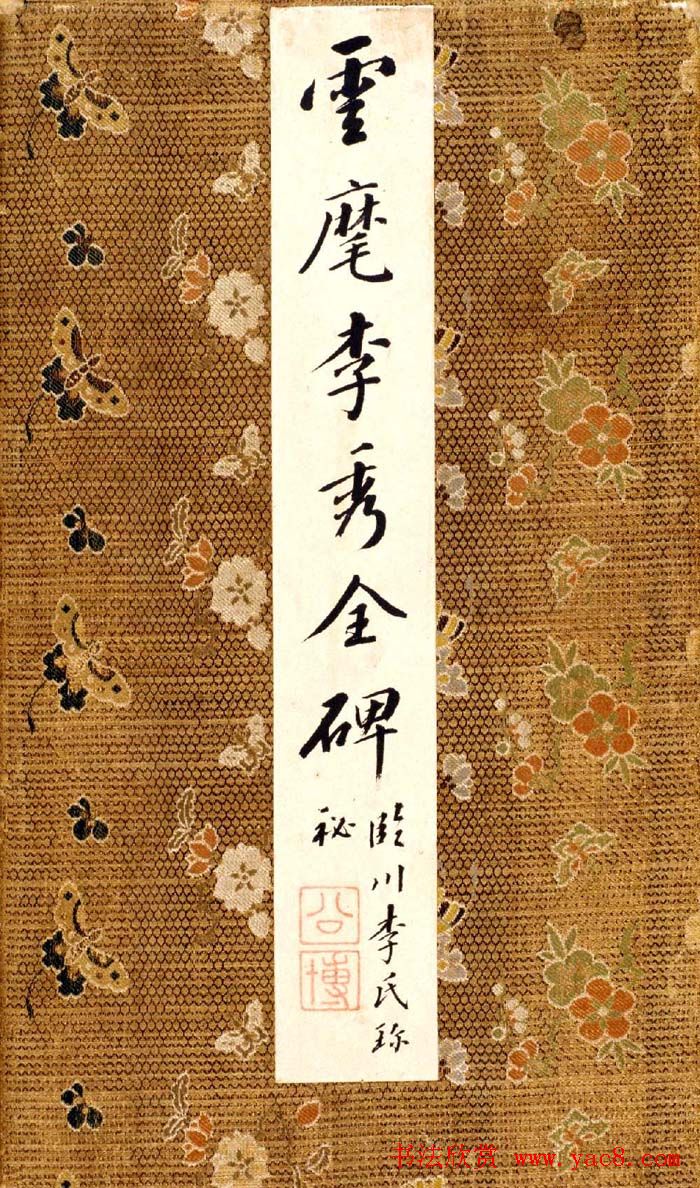 雲麾李秀全碑
臨川李氏珎
秘
公
博
书法欣赏 www.yac8.com